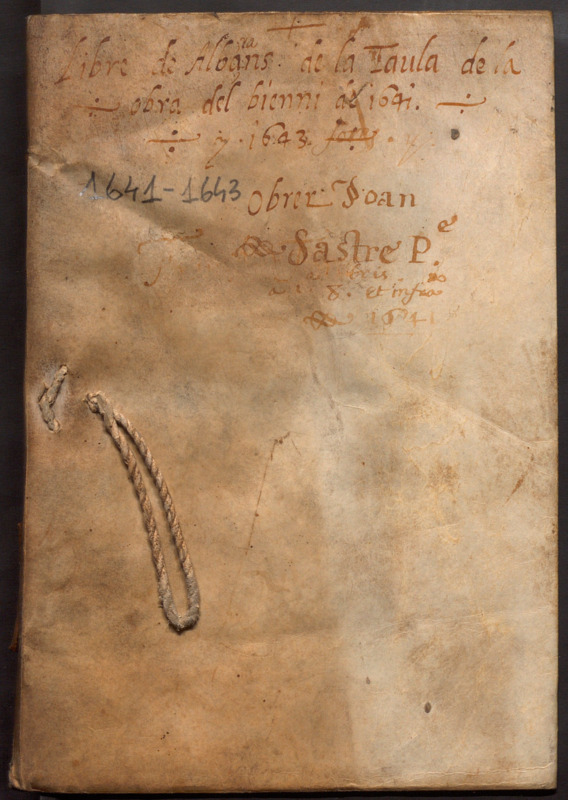 Libre de Albgns ra de la Taula de la
obra del bienni de 1641.
y 1643
1641-1643 Obrer Joan
Sastre P.e
8. et infra
1641